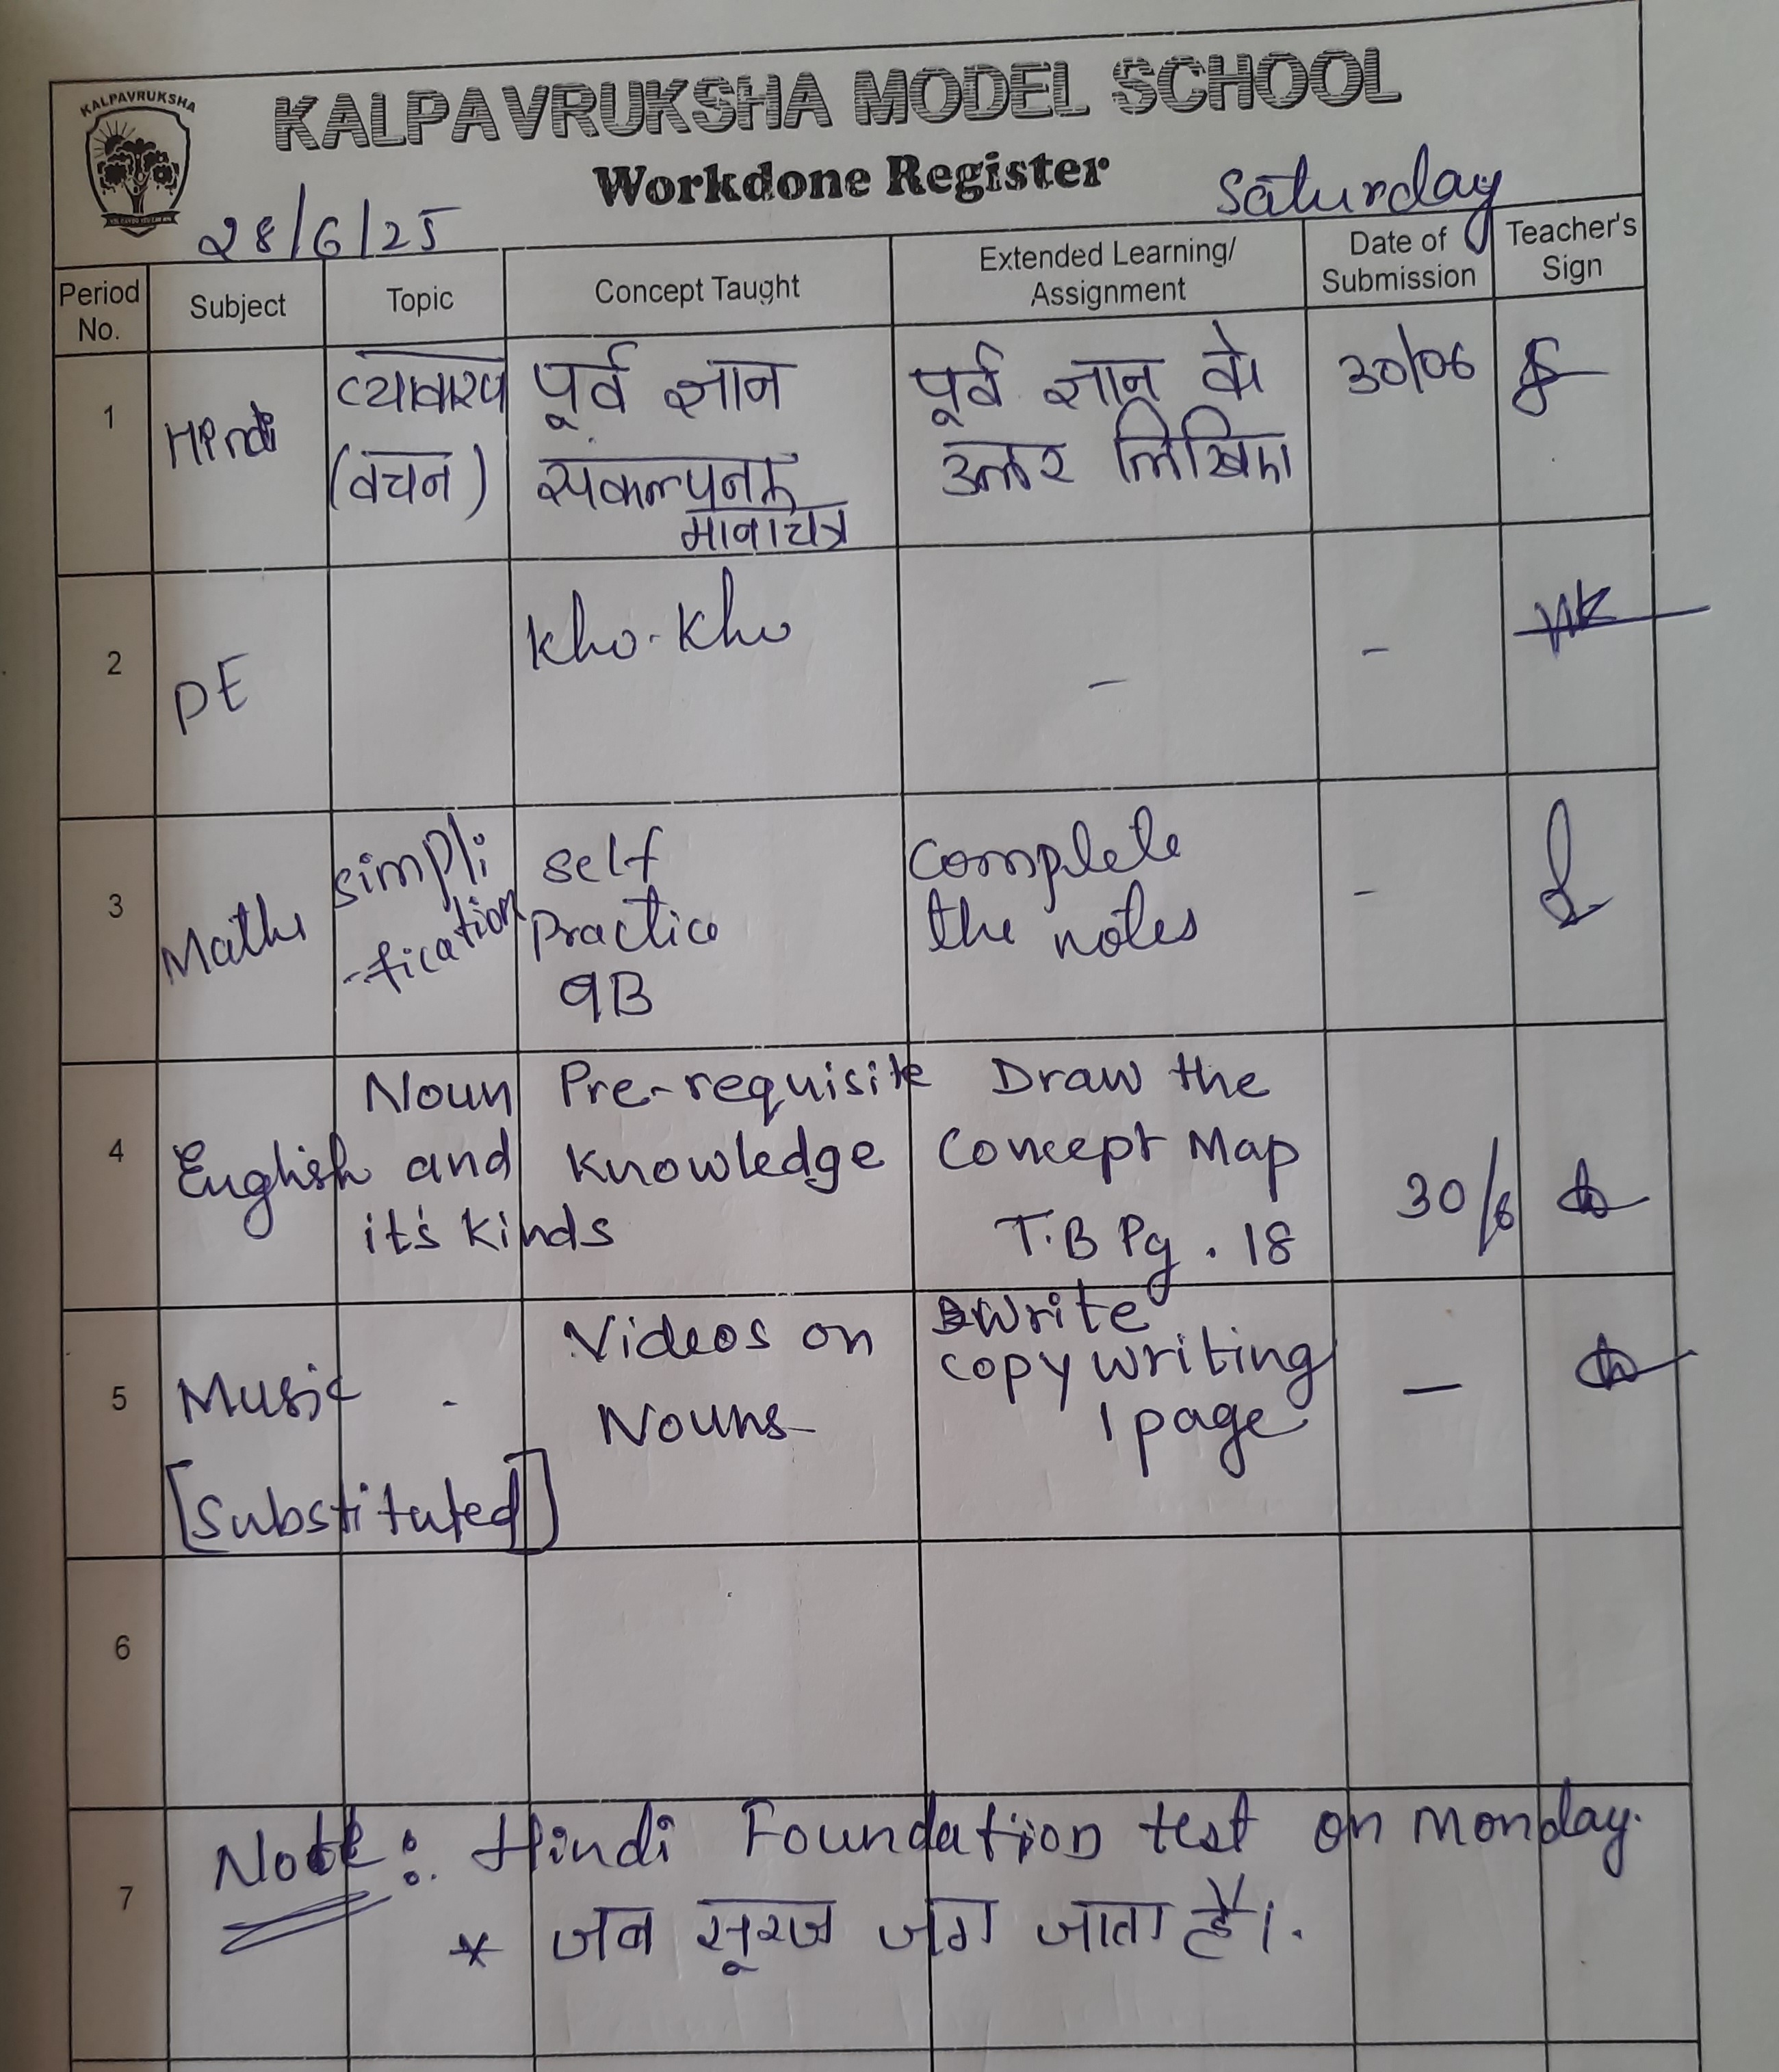 KALPAVRUKSHA
KALPAVRUKSHA MODEL SCHOOL
Workdone Register
28/6/25
Saturday
Period No.
Subject
Topic
Concept Taught
Extended Learning/
Assignment
Date of
Submission
Teacher's
Sign
1
Hindi
व्याकरण
(वचन)
पूर्व ज्ञान
संकल्पना
मानचित्र
पूर्व ज्ञान के
उत्तर लिखिए।
30/06
2
PE
Kho-Kho
-
-
3
Maths
simpli
-fication
self
Practice
9B
Complete
the notes
-
4
English
Noun
and
it's kinds
Pre-requisite
Knowledge
Draw the
Concept Map
T.B Pg. 18
30/6
5
Music
[Substituted]
-
Videos on
Nouns
Write
copy writing
1 page
-
6
7
Note: Hindi Foundation test on Monday.
* जब सूरज जग जाता है।